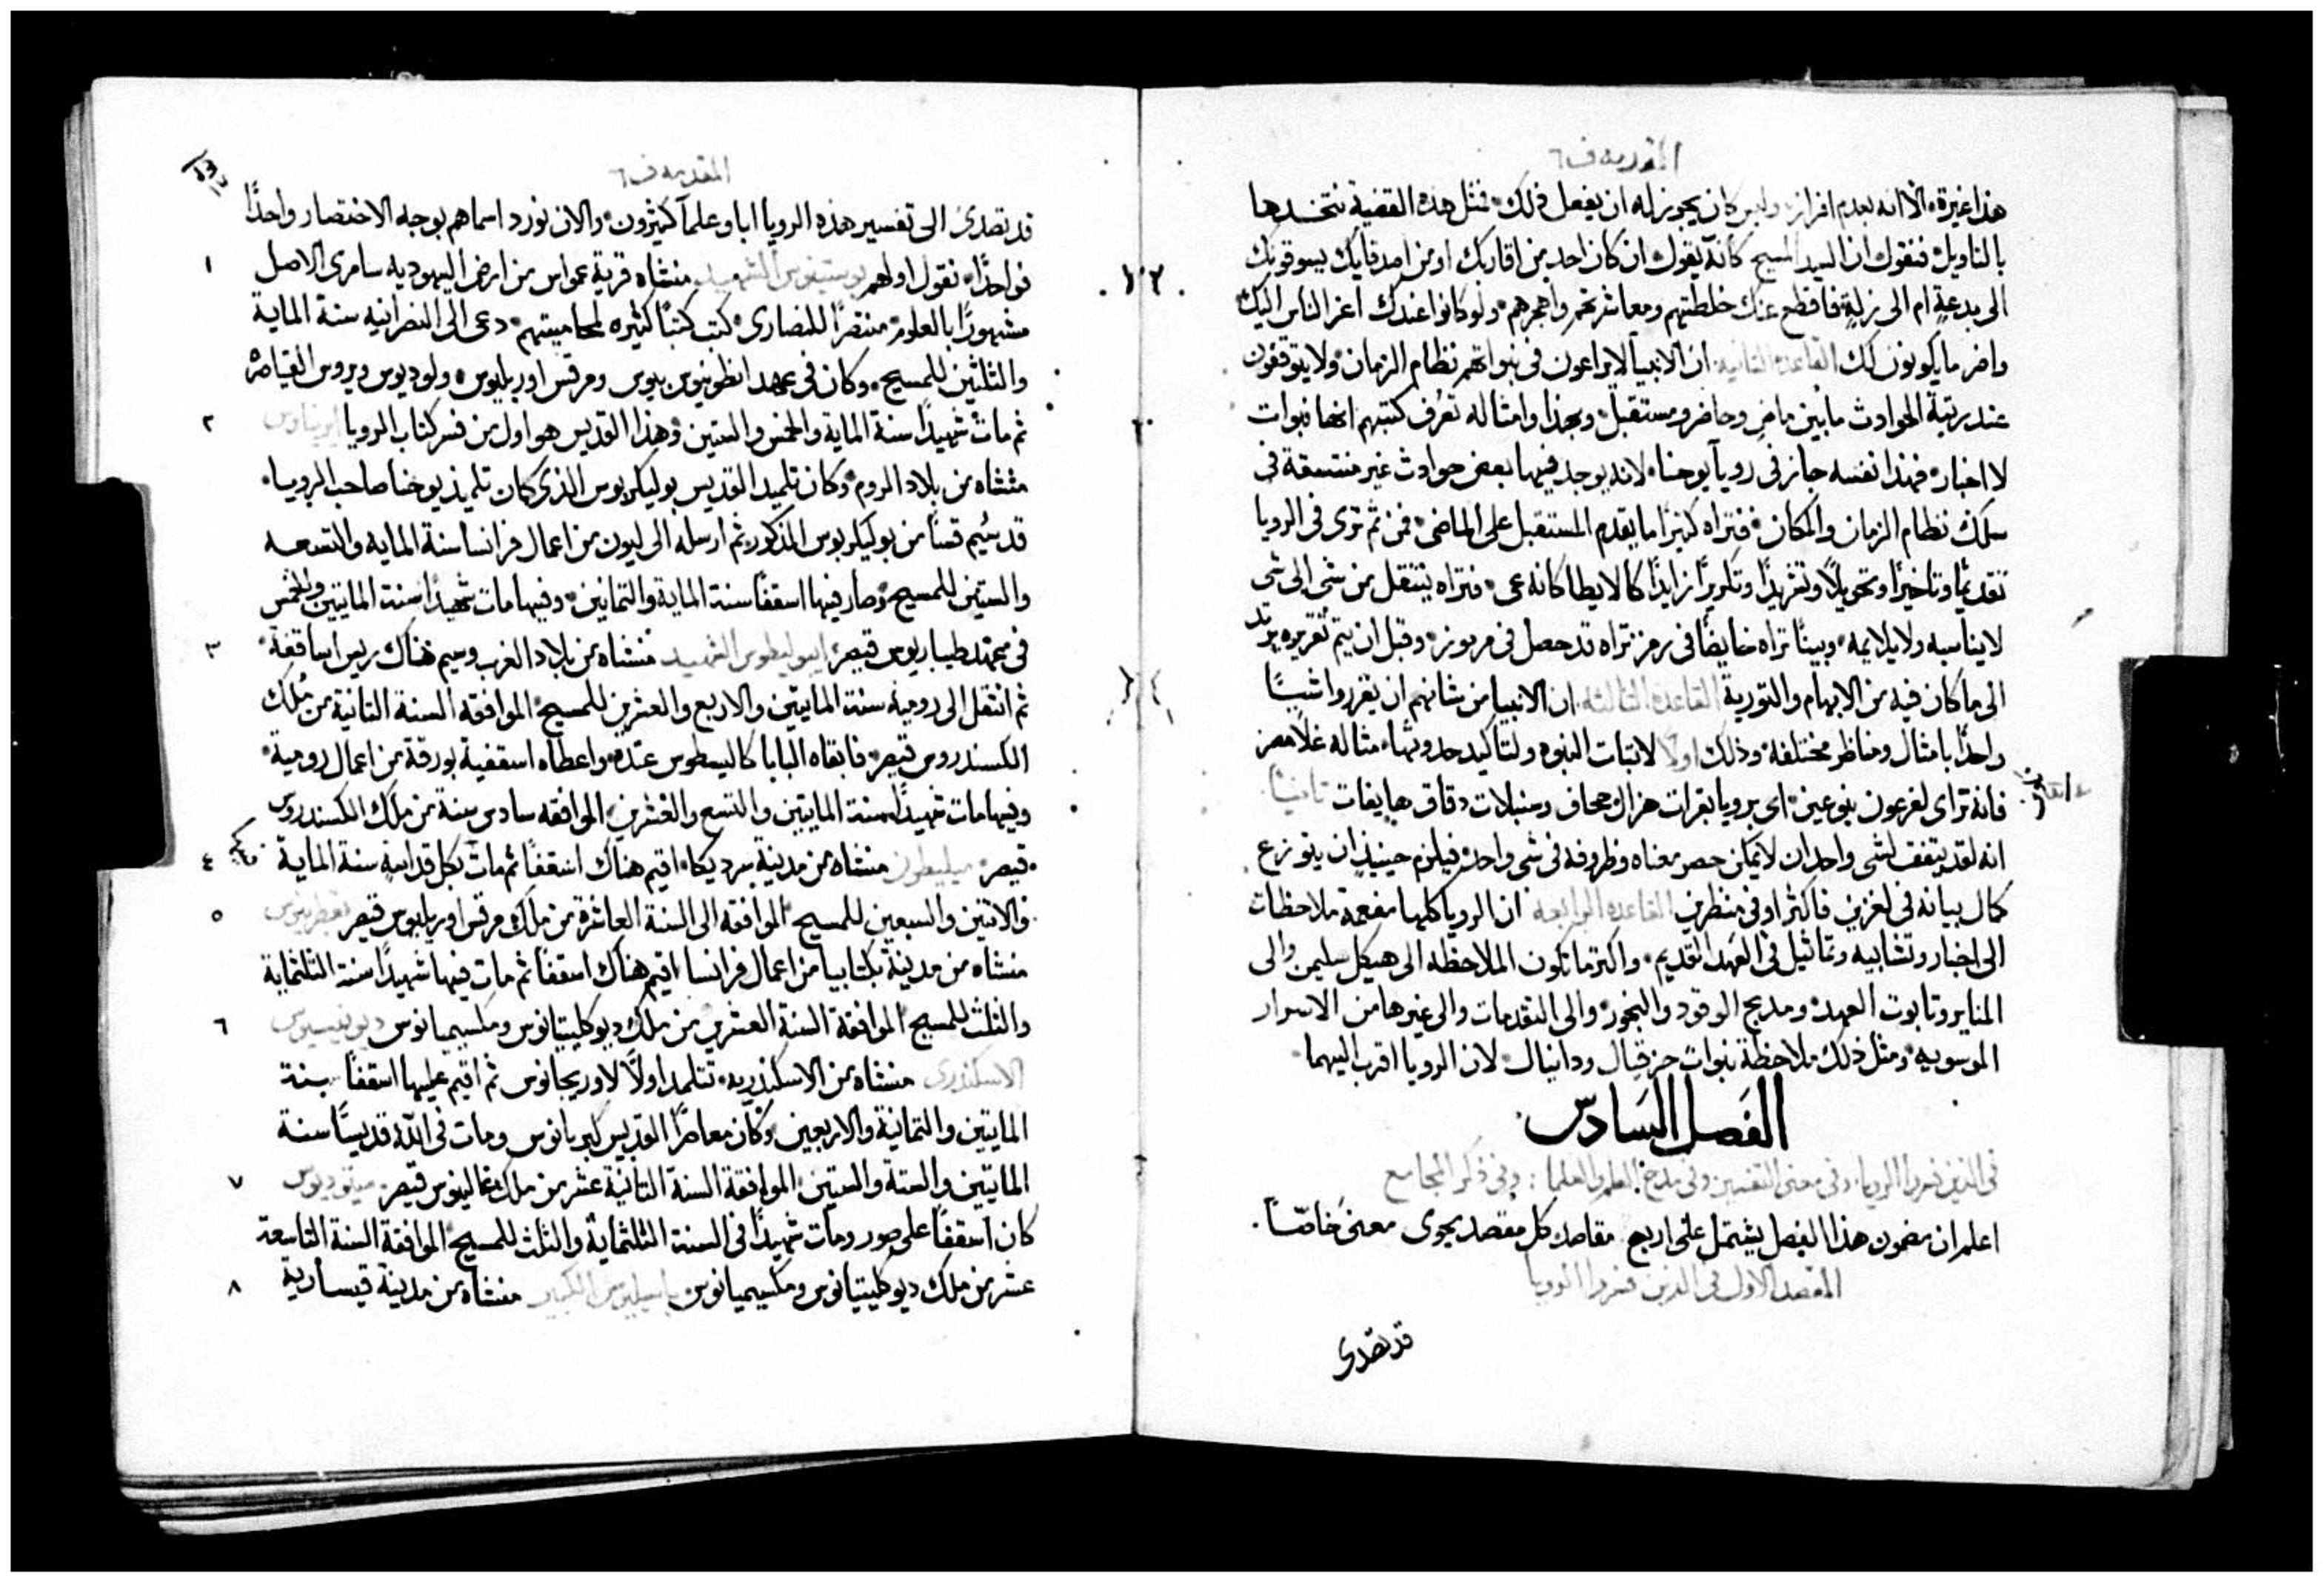 المقدمه ف٦
هذا غيرة، الا انه بعدم افراز، وليس كان يجوز له ان يفعل ذلك، فمثل هذه القضية نتخذها
بالتاويل، فنقول ان السيد المسيح كانه يقول، ان كان احد من اقاربك او من اصدقايك يسوقونك
الى بدعةٍ ام الى زلةٍ فاقطع عنك خلطتهم ومعاشرتهم واهجرهم، ولو كانوا عندك اعز الناس اليك
واضر ما يكونون لك القاعدة الثانيه ان الانبيا لا يراعون في نبواتهم نظام الزمان، ولا يتوقفون
عند رتبة الحوادث ما بين ماضٍ وحاضر ومستقبل، وبهذا وامثاله تعرف كتبهم انها نبوات
لا اخبار، فهذا نفسه جايز في رويا يوحنا، لانه يوجد فيها بعض حوادث غير منتسقة في
سلك نظام الزمان والمكان، فتراه كثيرًا ما يقدم المستقبل على الماضي، فمن ثم ترى في الرويا
تقديمًا وتاخيرًا وتحويلًا وتغريدًا وتكريرًا زايدًا كالايطا كانه عى، فتراه ينتقل من شى الى شى
لا يناسبه ولا يلايمه، وبينا تراه خايضًا في رمز تراه قد حصل في مرموز، وقبل ان يتم تقريره يرتد
الى ما كان فيه من الابهام والتورية القاعدة الثالثه ان الانبيا من شانهم ان يقرروا شيئًا
واحدًا بامثال ومناظر مختلفه، وذلك اولًا لاثبات النبوه ولتاكيد حدوثها، مثاله غلا مصر
فانه تراى لفرعون بنوعين، اى برويا بقرات هزال عجاف وسنبلات دقاق هايفات ثانيًا
انه لقد يتفق لشى واحد ان لا يمكن حصر معناه وظروفه في شى واحد، فيلزم حينيذٍ ان يتوزع
كمال بيانه في لغزين فاكثر او في منظرين القاعده الرابعه ان الرويا كلها مفعمة ملاحظات
الى اخبار وتشابيه وتماثيل في العهد القديم، واكثر ما تكون الملاحظه الى هيكل سليمن والى
المناير وتابوت العهد، ومذبح الوقود والبخور، والى التقدمات والى غيرها من الاسرار
الموسويه، ومثل ذلك ملاحظة نبوات حزقيال ودانيال، لان الرويا اقرب اليهما
الفصل السادس
في الذين فسروا الرويا، وفي معنى التفسير، وفي مدح العلم والعلما: وفي ذكر المجامع
اعلم ان مضمون هذا الفصل يشتمل على اربع مقاصد كل مقصد يحوى معنىً خاصًا.
المقصد الاول في الذين فسروا الرويا
قد تصدى
المقدمه ف٦
قد تصدى الى تفسير هذه الرويا ابا وعلما كثيرون، والان نورد اسماهم بوجه الاختصار واحدًا
فواحدًا، نقول اولهم يوستينوس الشهيد، منشاه قرية عمواس من ارض اليهوديه سامرى الاصل ١
مشهورًا بالعلوم، منتصرًا للنصارى، كتب كتبًا كثيره لمحاميتهم، دعى الى النصرانيه سنة الماية
والثلثين للمسيح، وكان في عهد انطونينوس بيوس ومرقس اوريليوس، ولوديوس ويروس القياصرة
ثم مات شهيدًا سنة الماية والخمس والستين، وهذا القديس هو اول من فسر كتاب الرويا ايريناوس ٢
منشاه من بلاد الروم، وكان تلميذ القديس بوليكربوس الذى كان تلميذ يوحنا صاحب الرويا،
قد سُيم قسًا من بوليكربوس المذكور، ثم ارسله الى ليون من اعمال فرانسا سنة الماية والتسعه
والستين للمسيح، وصار فيها اسقفًا سنة الماية والثمانين، وفيها مات شهيدًا سنة المايتين والخمس
في عهد طيباريوس قيصر، ايبوليطوس الشهيد منشاه من بلاد الغرب وسيم هناك ريس اساقفة، ٣
ثم انتقل الى رومية سنة المايتين والاربع والعشرين للمسيح، الموافقه السنة الثانية من مُلك
الكسندروس قيصر، فابقاه البابا كاليسطوس عنده، واعطاه اسقفية بورقة من اعمال رومية،
وفيها مات شهيدًا سنة المايتين والتسع والعشرين، الموافقه سادس سنة من ملك الكسندروس
قيصر، ميليطون منشاه من مدينة سرديكا، اقيم هناك اسقفًا ثم مات بكل قداسةٍ سنة الماية ٤
والاثنين والسبعين للمسيح، الموافقه الى السنة العاشرة من ملك مرقس اوريليوس قيصر ٥
منشاه من مدينة بكتابيا من اعمال فرانسا، اقيم هناك اسقفًا ثم مات فيها شهيدًا سنة الثلثماية
والثلث للمسيح، الموافقة السنة العشرين من ملك ديوكليتيانوس ومكسيميانوس ديونيسيوس ٦
الاسكندرى منشاه من الاسكندريه، تتلمذ اولًا لاوريجانوس ثم اقيم عليها اسقفًا سنة
المايتين والثمانية والاربعين، وكان معاصرًا القديس كبريانوس ومات في الله قديسًا سنة
المايتين والستة والستين، الموافقة السنة الثانية عشر من ملك غالينوس قيصر، ميتوديوس ٧
كان اسقفًا على صور ومات شهيدًا في السنة الثلثماية والثلث للمسيح، الموافقة السنة التاسعة
عشر من ملك ديوكليتيانوس ومكسيميانوس باسيليوس الكبير منشاه من مدينة قيسارية ٨